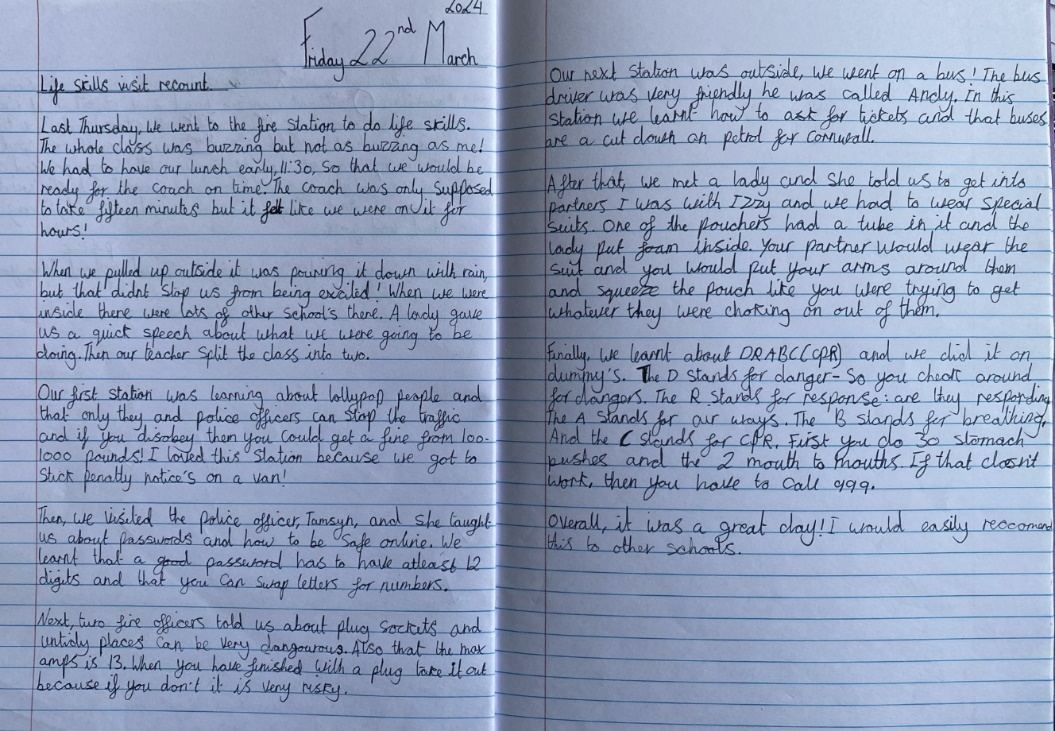 2024
Friday 22nd March
Life skills visit recount.
Last Thursday, we went to the fire station to do life skills.
The whole class was buzzing but not as buzzing as me!
We had to have our lunch early, 11:30, So that we would be
ready for the coach on time. The coach was only supposed
to take fifteen minutes but it felt like we were on it for
hours!
When we pulled up outside it was pouring it down with rain,
but that didnt stop us from being excited! When we were
inside there were lots of other school's there. A lady gave
us a quick speech about what we were going to be
doing. Then our teacher split the class into two.
Our first station was learning about lollypop people and
that only they and police officers can stop the traffic
and if you disobey them you could get a fine from 100-
1000 pounds! I loved this station because we got to
stick penalty notice's on a van!
Then, we visited the police officer, Tamsyn, and she taught
us about passwords and how to be safe online. We
learnt that a good password has to have atleast 12
digits and that you can swap letters for numbers.
Next, two fire officers told us about plug sockets and
untidy places can be very dangourous. Also that the max
amps is 13. When you have finished with a plug take it out
because if you don't it is very risky.
Our next station was outside, we went on a bus! The bus
driver was very friendly he was called Andy. In this
station we learnt how to ask for tickets and that buses
are a cut down on petrol for Cornwall.
After that, we met a lady and she told us to get into
partners I was with Izzy and we had to wear special
suits. One of the pouchers had a tube in it and the
lady put foam inside. Your partner would wear the
suit and you would put your arms around them
and squeeze the pouch like you were trying to get
whatever they were choking on out of them.
Finally, we learnt about DRABC(CPR) and we did it on
dummy's. The D stands for danger- So you check around
for dangers. The R stands for response: are they responding
The A stands for air ways. The B stands for breathing.
And the C stands for CPR. First you do 30 stomach
pushes and the 2 mouth to mouths. If that doesn't
work, then you have to call 999.
Overall, it was a great day! I would easily reccomend
this to other schools.